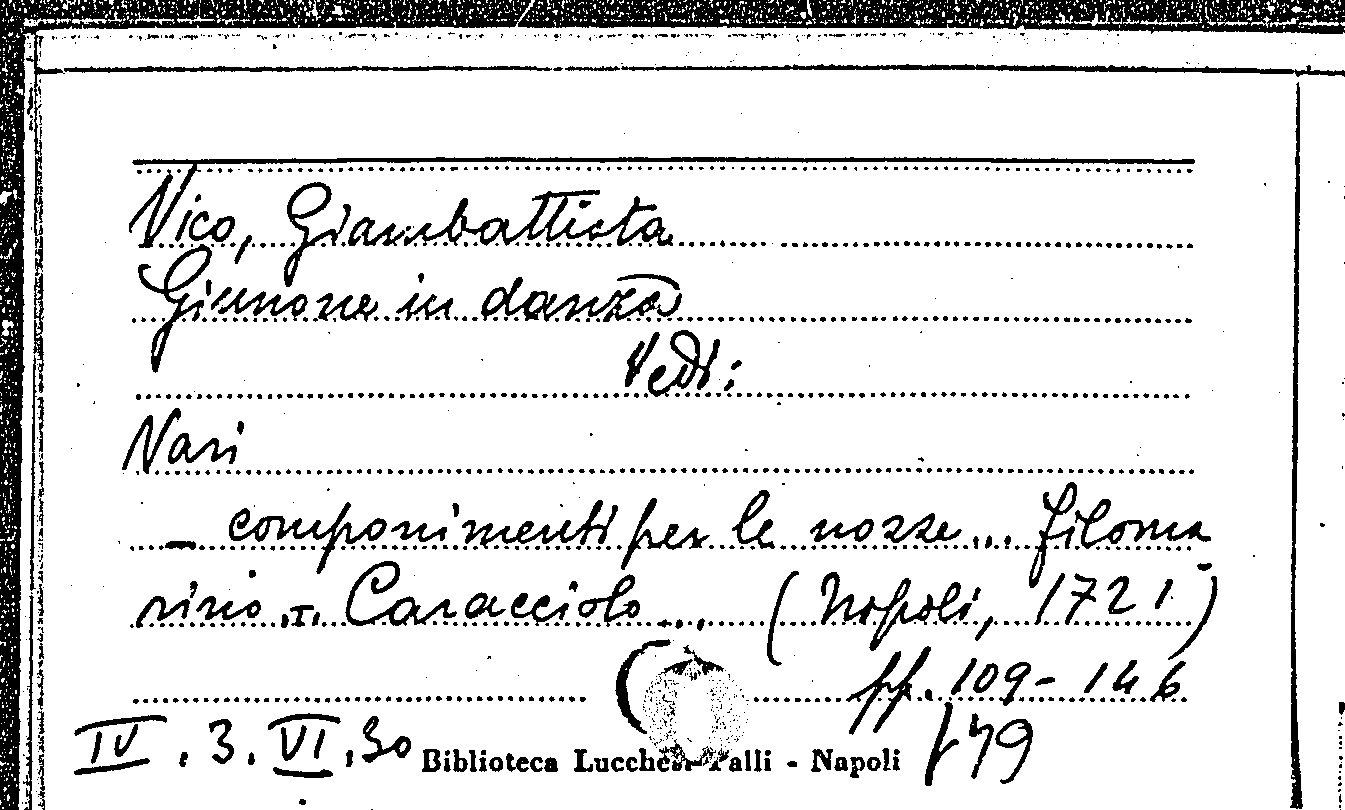 Vico, Giambattista
Giunone in danza
Vedi:
Vari
- componimenti per le nozze... Filoma
rino - Caracciolo... (Napoli, 1721)
pp. 109-146
IV . 3. VI . 30 Biblioteca Lucchesi Palli - Napoli